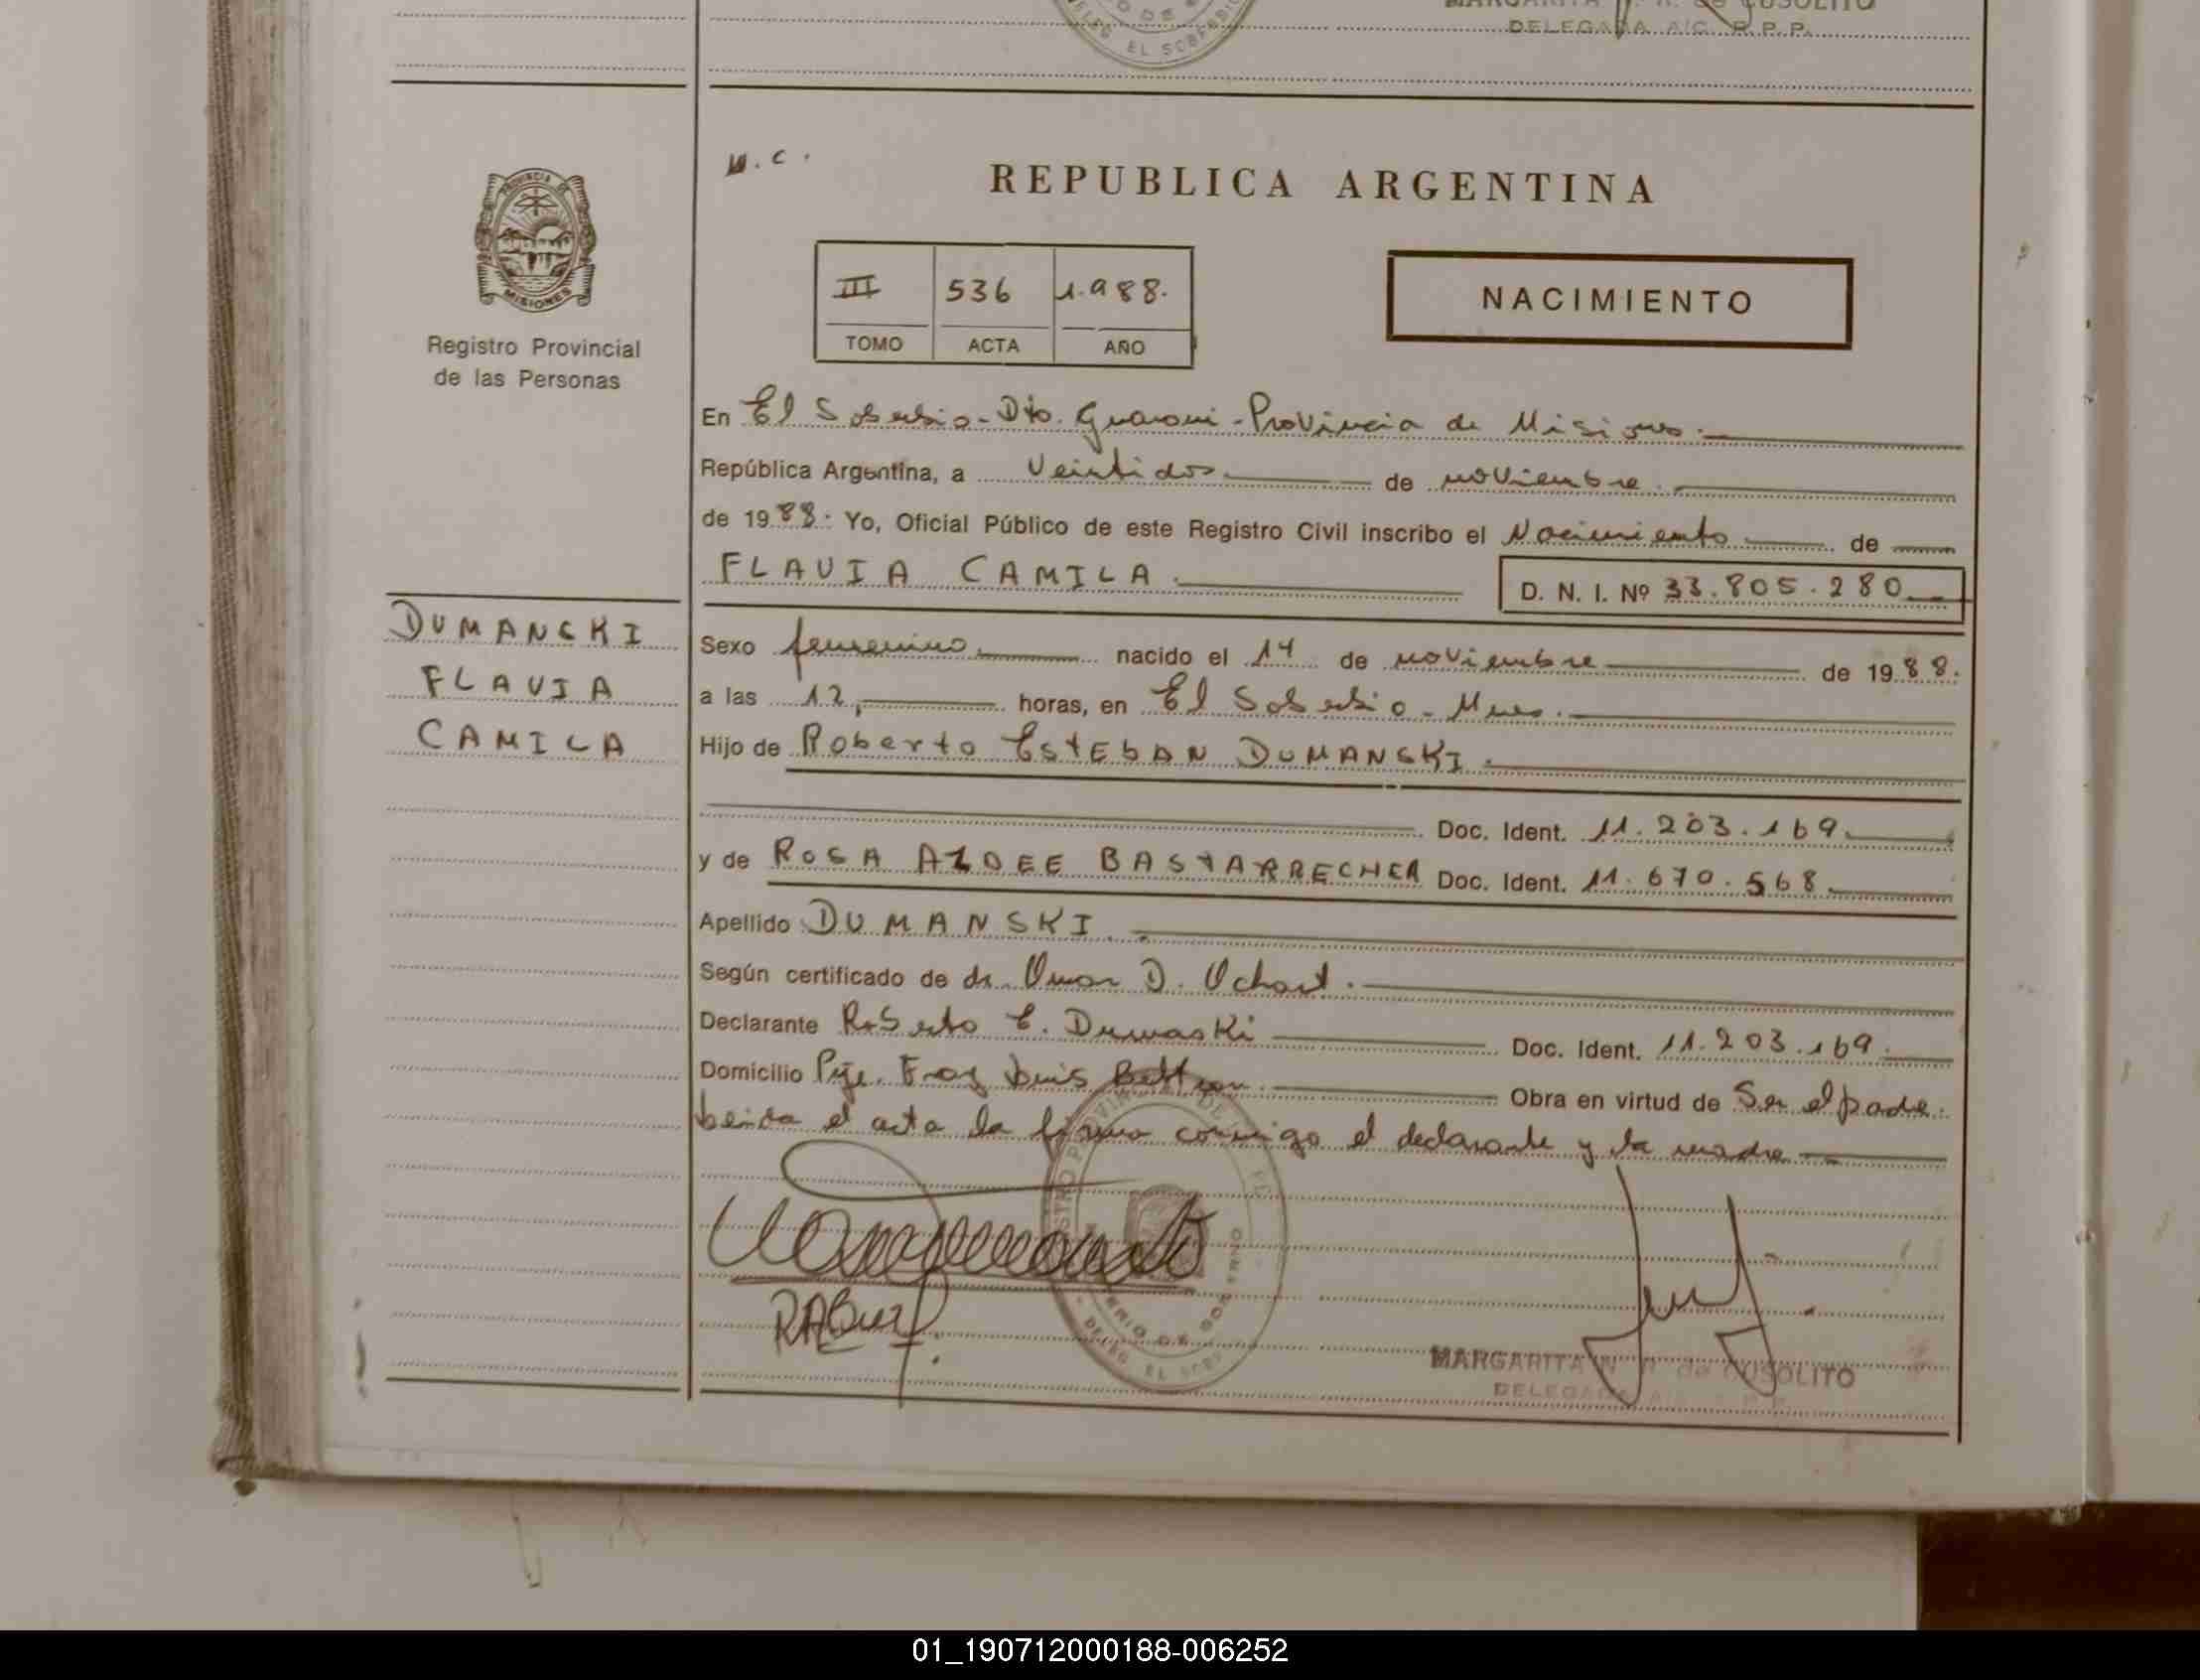 MARGARITA de CUSOLITO
DELEGADA A/C. R.P.P.
EL SOBERBIO
M.C.
REPUBLICA ARGENTINA
PROVINCIA DE
MISIONES
Registro Provincial
de las Personas
III 536 1.988.
TOMO ACTA AÑO
NACIMIENTO
En El Soberbio - Dto. Guarani - Provincia de Misiones.
República Argentina, a Veintidos de noviembre.
de 1988. Yo, Oficial Público de este Registro Civil inscribo el Nacimiento de
FLAVIA CAMILA.
D. N. I. Nº 33.805.280
DUMANSKI
FLAVIA
CAMILA
Sexo femenino nacido el 14 de noviembre de 1988.
a las 12, horas, en El Soberbio - Mnes.
Hijo de Roberto ESTEBAN DUMANSKI.
Doc. Ident. 11.203.169.
y de ROSA AIDEE BASTARRECHEA Doc. Ident. 11.670.568
Apellido DUMANSKI.
Según certificado de dr. Omar D. Ochart.
Declarante Roberto E. Dumaski Doc. Ident. 11.203.169.
Domicilio Pje. Fray Luis Beltran. Obra en virtud de Ser el padre.
leida el acta la firma conmigo el declarante y la madre
MARGARITA de CUSOLITO
DELEGADA
01_190712000188-006252